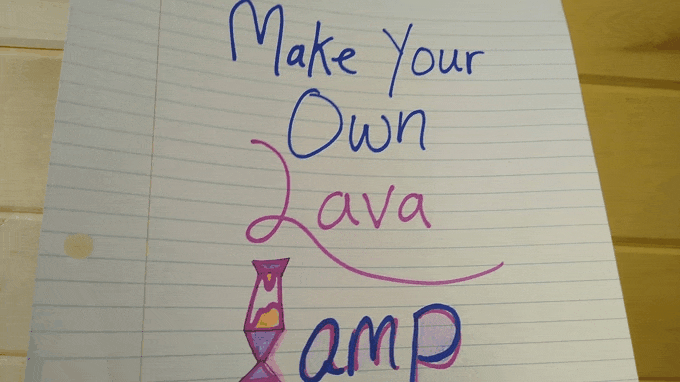 Make Your
Own
Lava
Lamp